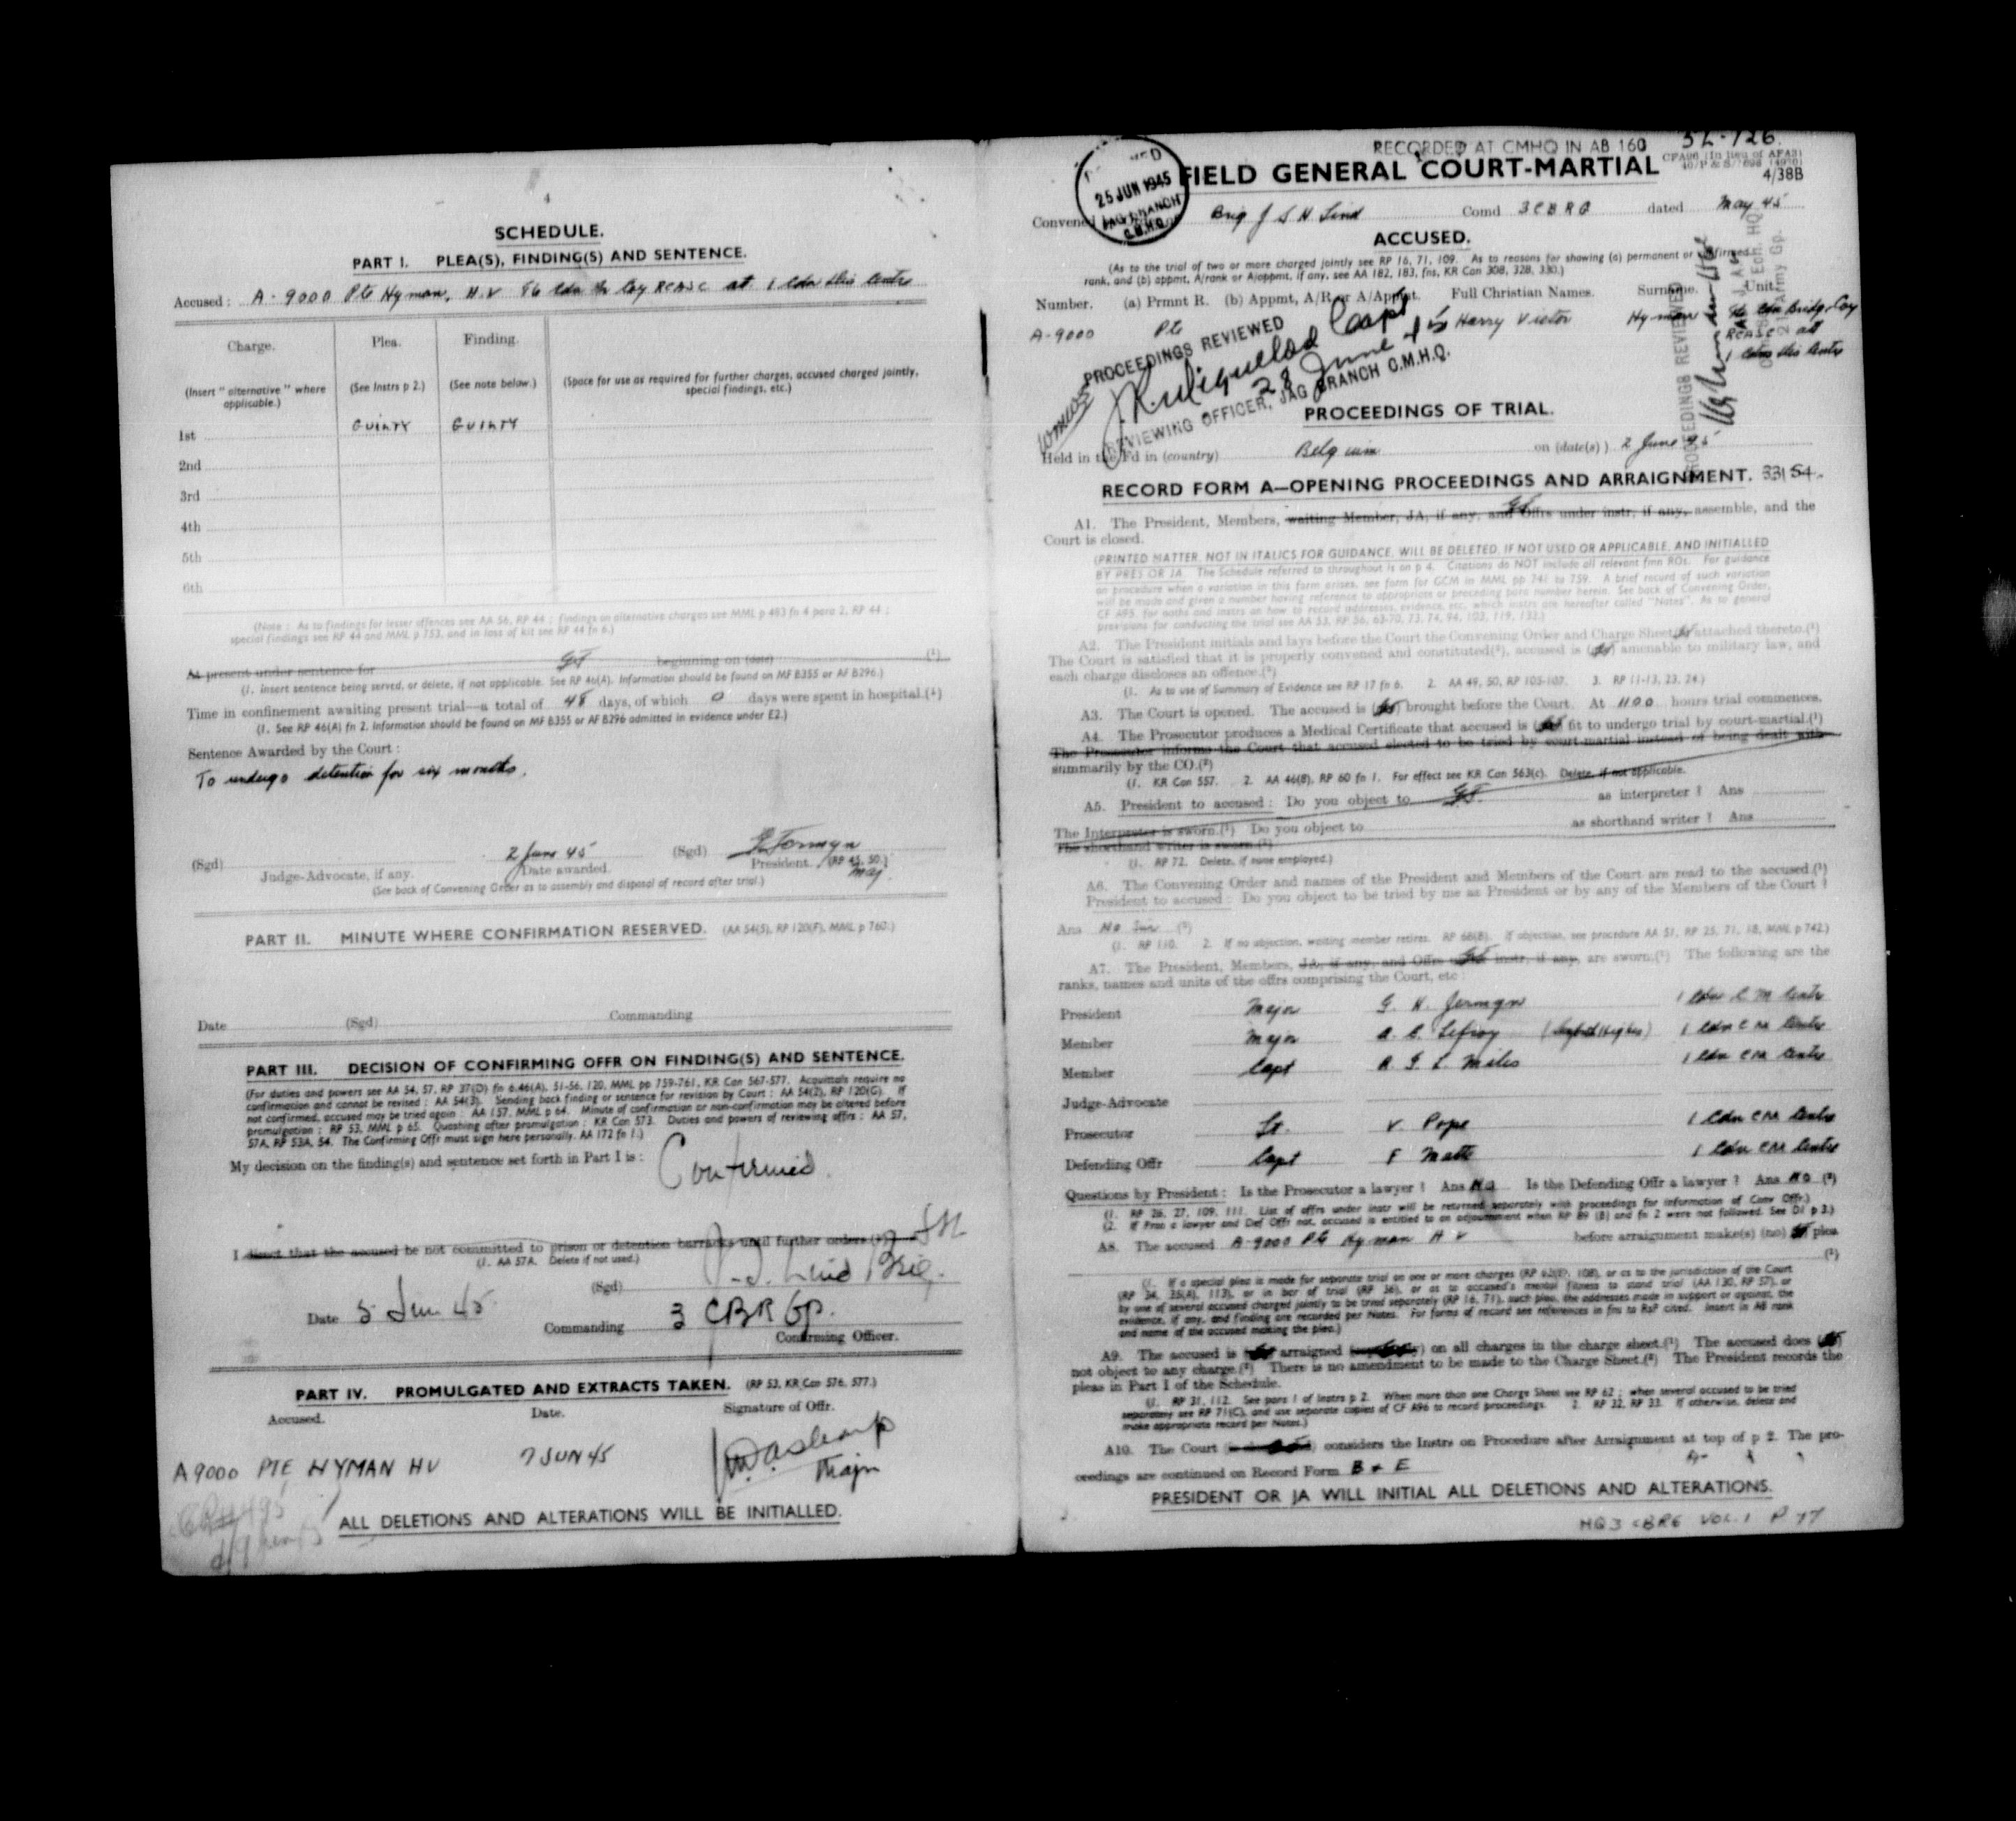 SCHEDULE.
PART I. PLEA(S), FINDING(S) AND SENTENCE.
Accused: A-9000 Pte Hyman, H.V 86 Cdn Coy RCASC at 1 Cdn Centre
Charge. Plea. Finding.
(Insert "alternative" where applicable.) (See Instrs p 2.) (See note below.) (Space for use as required for further charges, accused charged jointly, special findings, etc.)
1st GUILTY GUILTY
2nd
3rd
4th
5th
6th
(Note: As to findings for lesser offences see AA 56, RP 44; findings on alternative charges see MML p 483 fn 4 para 2, RP 44;
special findings see RP 44 and MML p 753, and in loss of kit see RP 44 fn 6.)
At present under sentence for beginning on (date) (¹)
(1. Insert sentence being served, or delete, if not applicable. See RP 46(A). Information should be found on MF B355 or AF B296.)
Time in confinement awaiting present trial—a total of 48 days, of which 0 days were spent in hospital.(¹)
(1. See RP 46(A) fn 2. Information should be found on MF B355 or AF B296 admitted in evidence under E2.)
Sentence Awarded by the Court:
To undergo detention for six months.
(Sgd) 2 June 45 (Sgd) Jermyn
Judge-Advocate, if any. Date awarded. President. (RP 45, 50.) Maj
(See back of Convening Order as to assembly and disposal of record after trial.)
PART II. MINUTE WHERE CONFIRMATION RESERVED. (AA 54(5), RP 120(F), MML p 760.)
Date (Sgd) Commanding
PART III. DECISION OF CONFIRMING OFFR ON FINDING(S) AND SENTENCE.
(For duties and powers see AA 54, 57, RP 37(D) fn 6,46(A), 51-56, 120, MML pp 759-761, KR Can 567-577. Acquittals require no
confirmation and cannot be revised: AA 54(3). Sending back finding or sentence for revision by Court: AA 54(2), RP 120(G). If
not confirmed, accused may be tried again: AA 157, MML p 64. Minute of confirmation or non-confirmation may be altered before
promulgation: RP 53, MML p 65. Quashing after promulgation: KR Can 573. Duties and powers of reviewing offrs: AA 57,
57A, RP 53A, 54. The Confirming Offr must sign here personally. AA 172 fn 1.)
My decision on the finding(s) and sentence set forth in Part I is: Confirmed.
I direct that the accused be not committed to prison or detention barracks until further orders
(1. AA 57A. Delete if not used.)
(Sgd) Lind Brig.
Date 5 Jun 45
Commanding 3 CBR Gp.
Confirming Officer.
PART IV. PROMULGATED AND EXTRACTS TAKEN. (RP 53, KR Can 576, 577.)
Accused. Date. Signature of Offr.
A9000 PTE HYMAN HV 7 JUN 45 Major
ALL DELETIONS AND ALTERATIONS WILL BE INITIALLED.
RECORDED AT CMHQ IN AB 160
CFA96 (In lieu of AFA3)
4/38B
25 JUN 1945
JAG BRANCH
C.M.H.Q.
FIELD GENERAL COURT-MARTIAL
Convened Brig J S H Lind Comd 3 C B R G dated May 45
ACCUSED.
(As to the trial of two or more charged jointly see RP 16, 71, 109. As to reasons for showing (a) permanent or confirmed
rank, and (b) appmt, A/rank or A/appmt, if any, see AA 182, 183, fns, KR Can 308, 328, 330.)
Number. (a) Prmnt R. (b) Appmt, A/R or A/Appmt. Full Christian Names. Surname. Unit.
A-9000 Pte Harry Victor Hyman 86 Cdn Bridge Coy
RCASC att
PROCEEDINGS REVIEWED
Capt
28 June 45
REVIEWING OFFICER, JAG BRANCH C.M.H.Q.
PROCEEDINGS REVIEWED
PROCEEDINGS OF TRIAL.
Held in the Fd in (country) Belgium on (date(s)) 2 June 45
RECORD FORM A—OPENING PROCEEDINGS AND ARRAIGNMENT.
A1. The President, Members, waiting Member, JA, if any, and Offrs under instr, if any, assemble, and the
Court is closed.
(PRINTED MATTER, NOT IN ITALICS FOR GUIDANCE, WILL BE DELETED, IF NOT USED OR APPLICABLE, AND INITIALLED
BY PRES OR JA. The Schedule referred to throughout is on p 4. Citations do NOT include all relevant fnn ROs. For guidance
on procedure when a variation in this form arises, see form for GCM in MML pp 741 to 759. A brief record of such variation
will be made and given a number having reference to appropriate or preceding para number herein. See back of Convening Order,
CF A95, for oaths and instrs on how to record addresses, evidence, etc, which instrs are hereafter called "Notes". As to general
provisions for conducting the trial see AA 53, RP 56, 63-70, 73, 74, 94, 103, 119, 132.)
A2. The President initials and lays before the Court the Convening Order and Charge Sheet attached thereto.(¹)
The Court is satisfied that it is properly convened and constituted(²), accused is amenable to military law, and
each charge discloses an offence.(³)
(1. As to use of Summary of Evidence see RP 17 fn 6. 2. AA 49, 50, RP 105-107. 3. RP 11-13, 23, 24.)
A3. The Court is opened. The accused is brought before the Court. At 1100 hours trial commences.
A4. The Prosecutor produces a Medical Certificate that accused is fit to undergo trial by court-martial.(¹)
The Prosecutor informs the Court that accused elected to be tried by court-martial instead of being dealt with
summarily by the CO.(²)
(1. KR Can 557. 2. AA 46(8), RP 60 fn 1. For effect see KR Can 563(c). Delete, if not applicable.
A5. President to accused: Do you object to as interpreter? Ans
The Interpreter is sworn.(¹) Do you object to as shorthand writer? Ans
The shorthand writer is sworn.(¹)
(1. RP 72. Delete, if none employed.)
A6. The Convening Order and names of the President and Members of the Court are read to the accused.(¹)
President to accused: Do you object to be tried by me as President or by any of the Members of the Court?
Ans No Sir (²)
(1. RP 110. 2. If no objection, waiting member retires. RP 68(B). If objection, see procedure AA 51, RP 25, 71, 18, MML p 742.)
A7. The President, Members, JA, if any, and Offrs instr, if any, are sworn.(¹) The following are the
ranks, names and units of the offrs comprising the Court, etc:
President Major G. H. Jermyn 1 Cdn C M Centre
Member Major A. B. Lefroy 1 Cdn CM Centre
Member Capt A. G. L. Miles 1 Cdn CM Centre
Judge-Advocate
Prosecutor Lt. V. Pope 1 Cdn CM Centre
Defending Offr Capt F Matte 1 Cdn CM Centre
Questions by President: Is the Prosecutor a lawyer? Ans No Is the Defending Offr a lawyer? Ans No (²)
(1. RP 26, 27, 109, 111. List of offrs under instr will be returned separately with proceedings for information of Conv Offr.)
(2. If Pros a lawyer and Def Offr not, accused is entitled to an adjournment when RP 89 (B) and fn 2 were not followed. See D1 p 3.)
A8. The accused A-9000 Pte Hyman H V before arraignment make(s) (no) plea
(¹)
(1. If a special plea is made for separate trial on one or more charges (RP 62(E), 108), or as to the jurisdiction of the Court
(RP 34, 35(A), 113), or in bar of trial (RP 36), or as to accused's mental fitness to stand trial (AA 130, RP 57), or
by one of several accused charged jointly to be tried separately (RP 16, 71), such plea, the addresses made in support or against, the
evidence, if any, and finding are recorded per Notes. For forms of record see references in fns to RsP cited. Insert in A8 rank
and name of the accused making the plea.)
A9. The accused is arraigned on all charges in the charge sheet.(¹) The accused does
not object to any charge.(²) There is no amendment to be made to the Charge Sheet.(²) The President records the
pleas in Part I of the Schedule.
(1. RP 31, 112. See para 1 of Instrs p 2. When more than one Charge Sheet see RP 62; when several accused to be tried
separately see RP 71(C), and use separate copies of CF A96 to record proceedings. 2. RP 32, RP 33. If otherwise, delete and
make appropriate record per Notes.)
A10. The Court considers the Instrs on Procedure after Arraignment at top of p 2. The pro-
ceedings are continued on Record Form B & E
PRESIDENT OR JA WILL INITIAL ALL DELETIONS AND ALTERATIONS.
HQ 3 CBRG VOL. 1 P 77